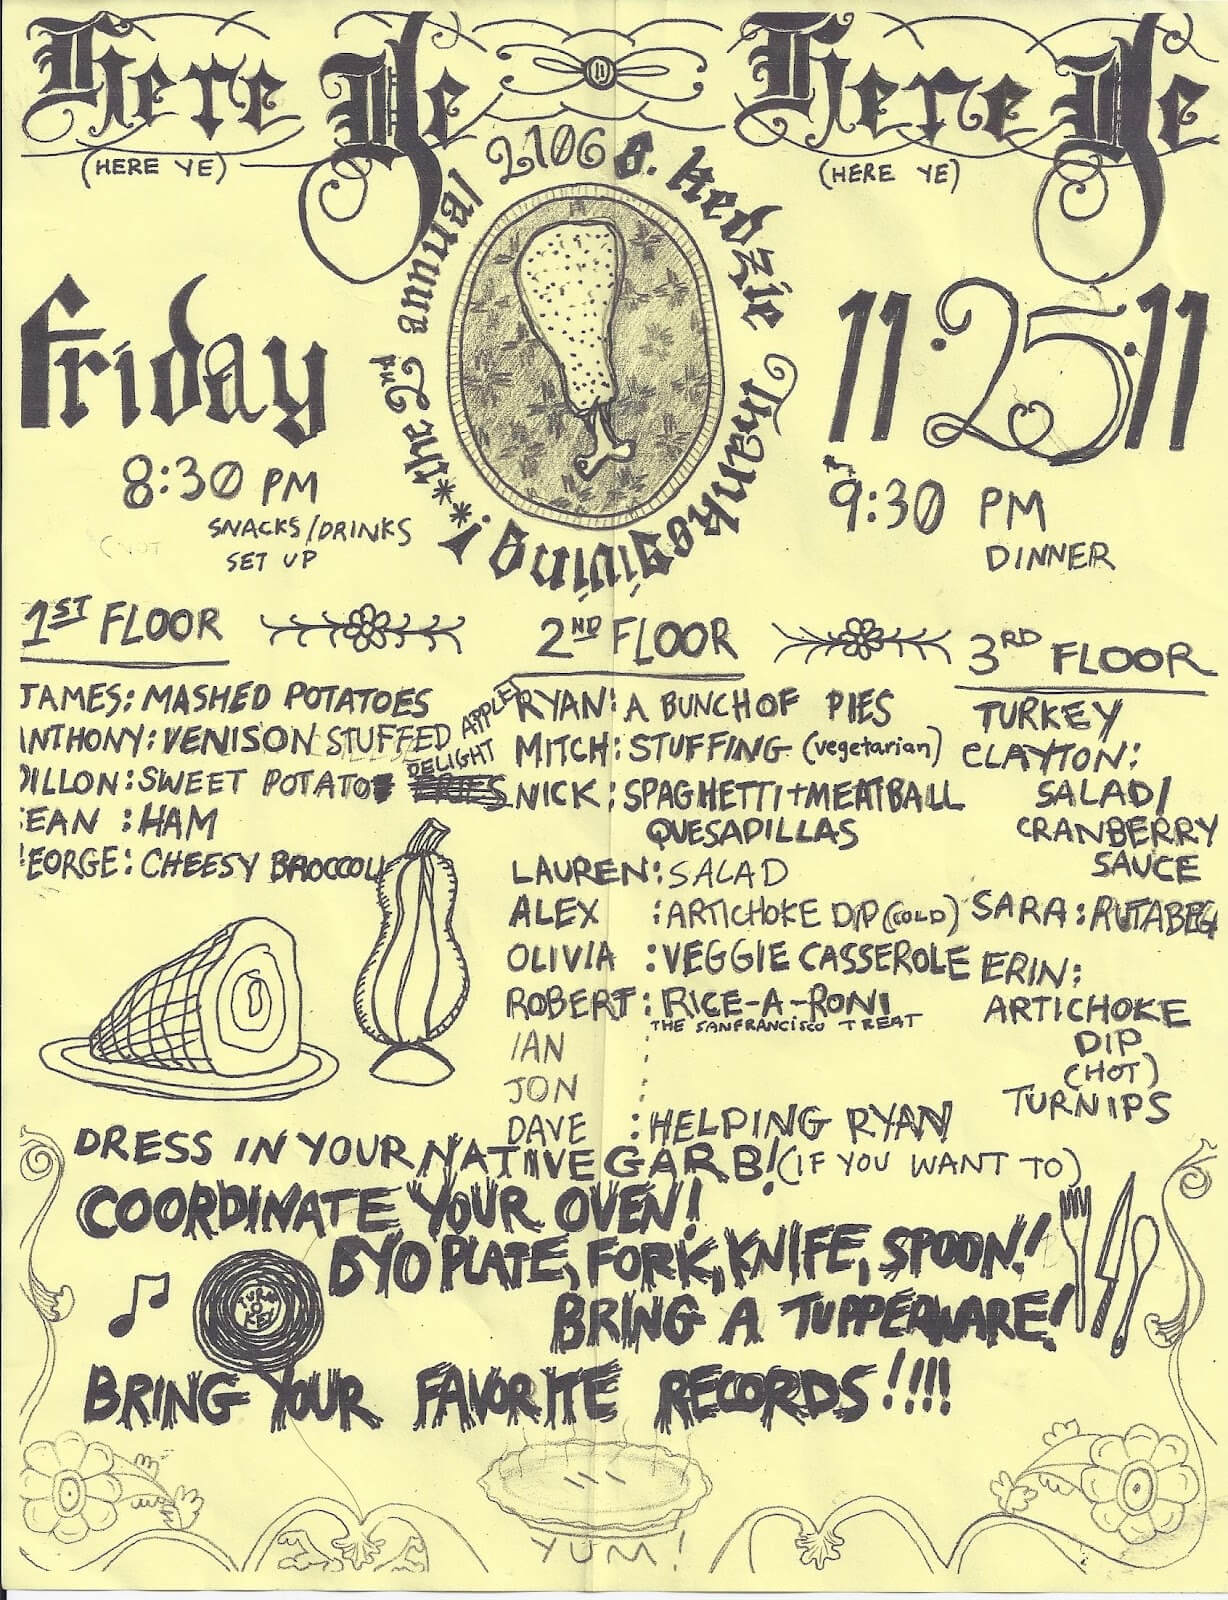 Here Ye Here Ye
(HERE YE)
(HERE YE)
***the 2nd annual 2106 S. Kedzie Thanksgiving!
Friday
11.25.11
8:30 PM
SNACKS/DRINKS
SET UP
9:30 PM
DINNER
1ST FLOOR
JAMES: MASHED POTATOES
ANTHONY: VENISON STUFFED APPLE!
DILLON: SWEET POTATO DELIGHT
EAN : HAM
EORGE: CHEESY BROCCOLI
2ND FLOOR
RYAN: A BUNCH OF PIES
MITCH: STUFFING (vegetarian)
NICK: SPAGHETTI+MEATBALL
QUESADILLAS
LAUREN: SALAD
ALEX : ARTICHOKE DIP (COLD)
OLIVIA : VEGGIE CASSEROLE
ROBERT: RICE-A-RONI
THE SANFRANCISCO TREAT
IAN :
JON :
DAVE : HELPING RYAN
3RD FLOOR
TURKEY
CLAYTON:
SALAD/
CRANBERRY
SAUCE
SARA: RUTABEG
ERIN:
ARTICHOKE
DIP
(HOT)
TURNIPS
DRESS IN YOUR NATIVE GARB! (IF YOU WANT TO)
COORDINATE YOUR OVEN!
BYO PLATE, FORK, KNIFE, SPOON!
BRING A TUPPERWARE!
TURN
O
KEY
BRING YOUR FAVORITE RECORDS!!!!
YUM!